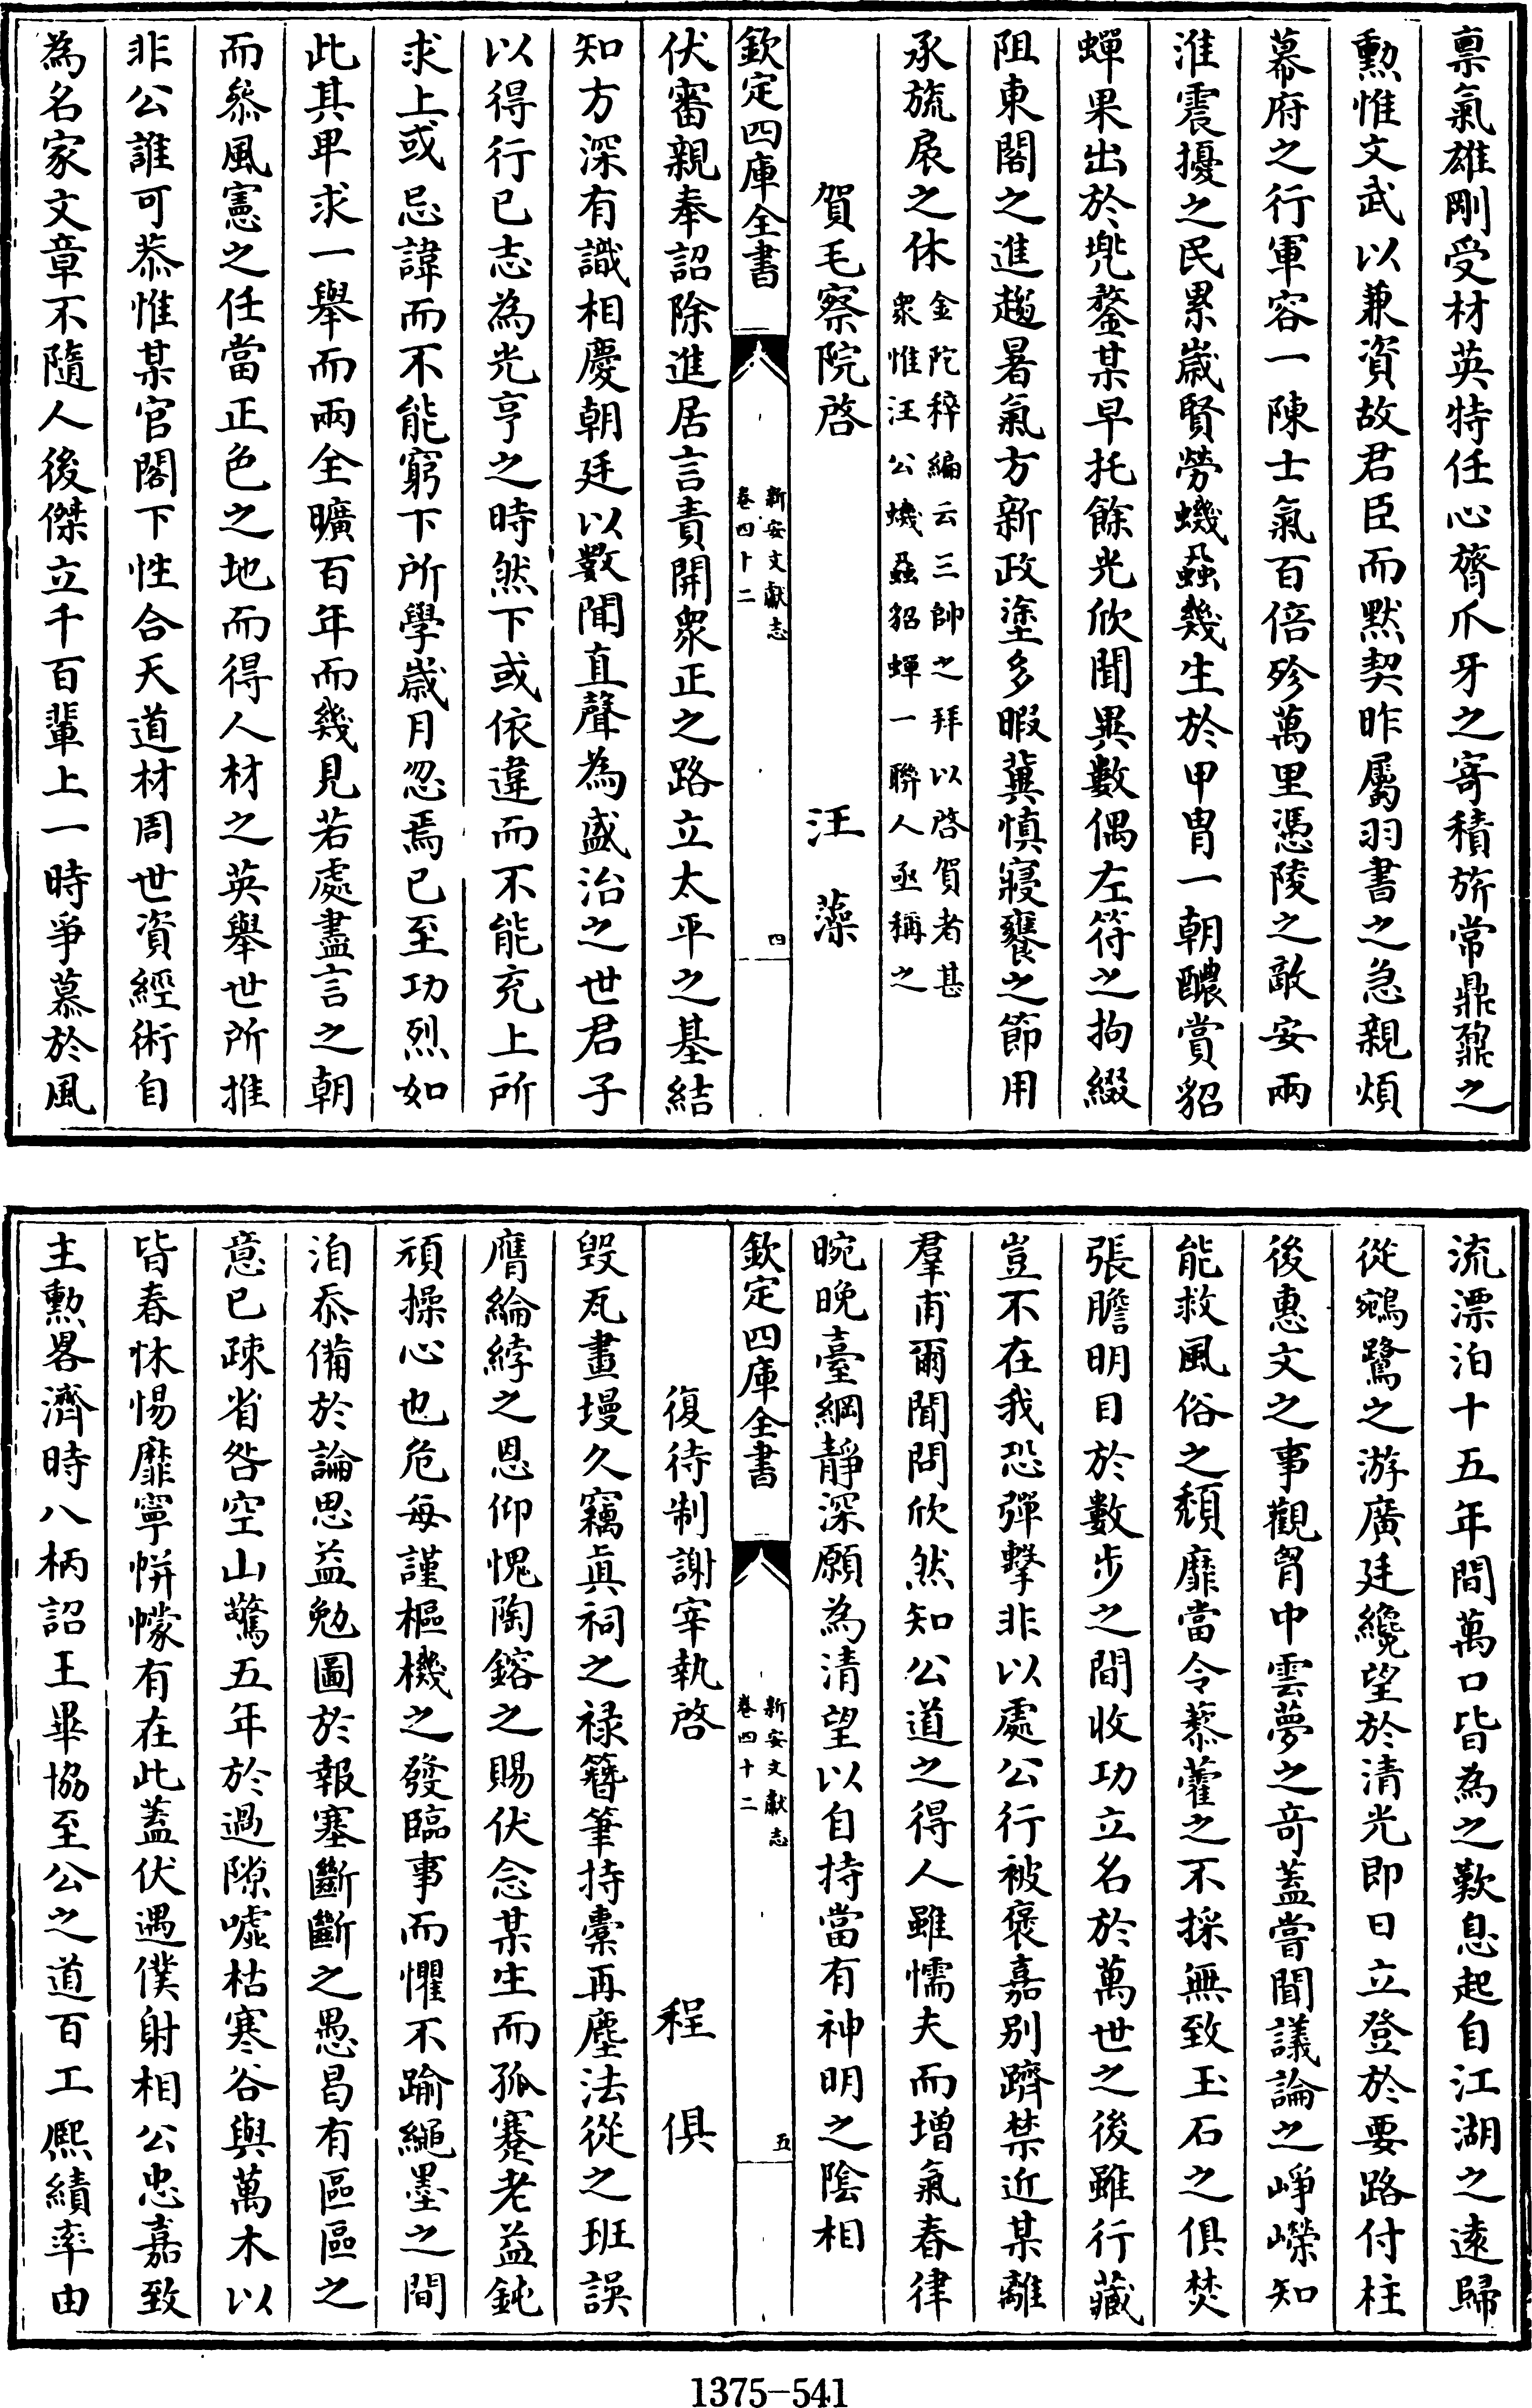 禀氣雄剛受材英特任心膂爪牙之寄積旂常鼎鼐之
勲惟文武以兼資故君臣而黙契昨屬羽書之急親煩
幕府之行軍容一陳士氣百倍殄萬里憑陵之敵安兩
淮震擾之民累嵗賢勞蟣蝨幾生於甲胄一朝醲賞貂
蟬果出於兠鍪某早托餘光欣聞異數偶左符之拘綴
阻東閣之進趨暑氣方新政塗多暇冀慎寢饔之節用
承旒扆之休
金陀稡編云三帥之拜以啓賀者甚
衆惟汪公蟣蝨貂蟬一聨人亟稱之
賀毛察院啓
汪藻
欽定四庫全書
新安文獻志
卷四十二
四
伏審親奉詔除進居言責開衆正之路立太平之基結
知方深有識相慶朝廷以數聞直聲為盛治之世君子
以得行已志為光亨之時然下或依違而不能充上所
求上或忌諱而不能窮下所學嵗月忽焉已至功烈如
此其卑求一舉而兩全曠百年而幾見若處盡言之朝
而叅風憲之任當正色之地而得人材之英舉世所推
非公誰可恭惟某官閣下性合天道材周世資經術自
為名家文章不隨人後傑立千百輩上一時爭慕於風
流漂泊十五年間萬口皆為之歎息起自江湖之逺歸
從鵷鷺之游廣廷纔望於清光即日立登於要路付柱
後惠文之事觀胷中雲夢之竒蓋嘗聞議論之崢嶸知
能救風俗之頽靡當令藜藿之不採無致玉石之俱焚
張膽明目於數步之間收功立名於萬世之後雖行藏
豈不在我恐彈擊非以處公行被褒嘉别躋禁近某離
羣甫爾聞問欣然知公道之得人雖懦夫而增氣春律
晼晚臺綱靜深願為清望以自持當有神明之陰相
欽定四庫全書
新安文獻志
卷四十二
五
復待制謝宰執啓
程俱
毀瓦畫墁久竊真祠之禄簪筆持橐再塵法從之班誤
膺綸綍之恩仰愧陶鎔之賜伏念某生而孤蹇老益鈍
頑操心也危每謹樞機之發臨事而懼不踰繩墨之間
洎忝備於論思益勉圖於報塞斷斷之愚曷有區區之
意已疎省咎空山驚五年於過隙噓枯寒谷與萬木以
皆春怵惕靡寧帲幪有在此蓋伏遇僕射相公忠嘉致
主勲畧濟時八柄詔王畢協至公之道百工熈績率由
1375-541